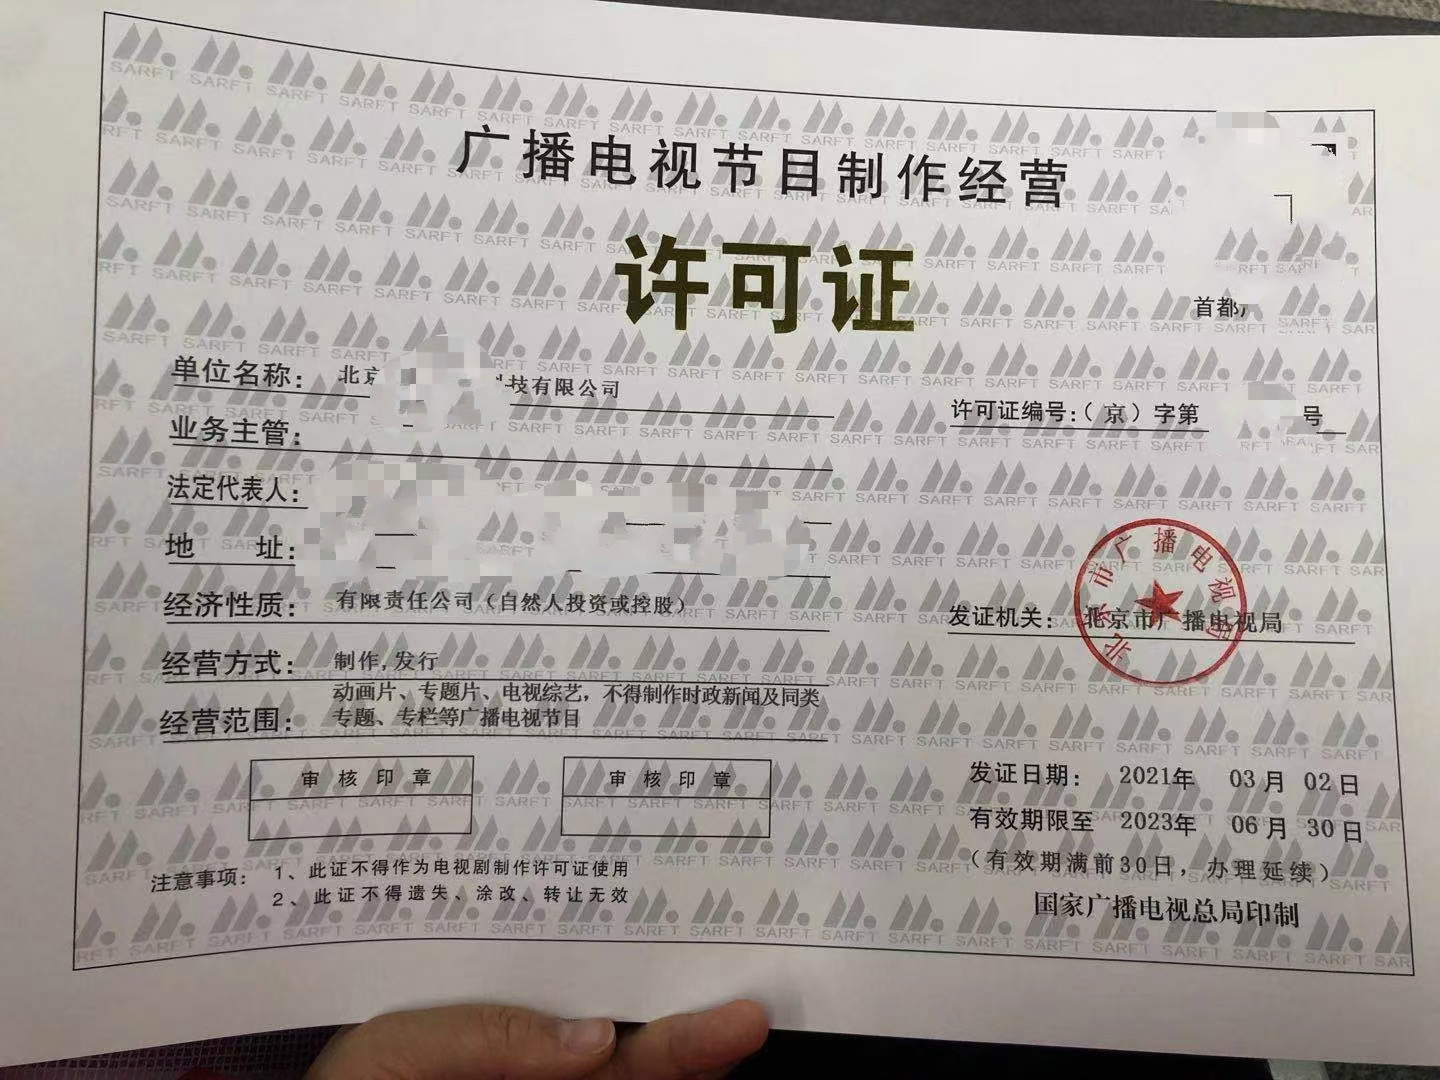 广播电视节目制作经营
许可证
首都
单位名称： 北京 科技有限公司
许可证编号:（京）字第 号
业务主管：
法定代表人：
地 址：
经济性质： 有限责任公司（自然人投资或控股）
发证机关： 北京市广播电视局
北京市广播电视局
经营方式： 制作,发行
经营范围： 动画片、专题片、电视综艺，不得制作时政新闻及同类
专题、专栏等广播电视节目
审核印章 审核印章
发证日期： 2021年 03月 02日
有效期限至 2023年 06月 30日
（有效期满前30日，办理延续）
注意事项： 1、此证不得作为电视剧制作许可证使用
2、此证不得遗失、涂改、转让无效
国家广播电视总局印制
SARFT